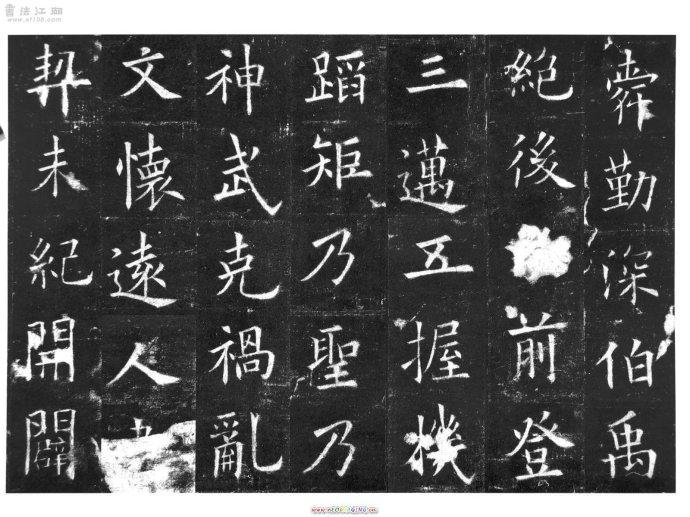 書法江湖
www.sf108.com
舜勤深伯禹
絕後前登
三邁五握機
蹈矩乃聖乃
神武克禍亂
文懷遠人
契未紀開闢